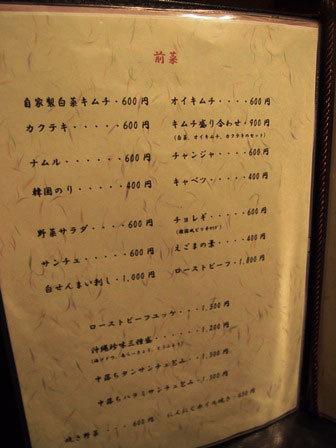 前菜
自家製白菜キムチ・600円
カクテキ・・・・・600円
ナムル・・・・・・600円
韓国のり・・・・・400円
野菜サラダ・・・・600円
サンチュ・・・・・600円
白せんまい刺し・1,000円
オイキムチ・・・・600円
キムチ盛り合わせ・900円
(白菜、オイキムチ、カクテキのセット)
チャンジャ・・・・600円
キャベツ・・・・・400円
チョレギ・・・・・600円
えごまの葉・・・・400円
ローストビーフ・1,800円
ローストビーフユッケ・・・1,500円
沖縄珍味三種盛・・・・・1,200円
中落ちタンサンチュ包み・1,500円
中落ちハラミサンチュ包み・1,500円
焼き野菜・・・600円
にんにくホイル焼き・650円